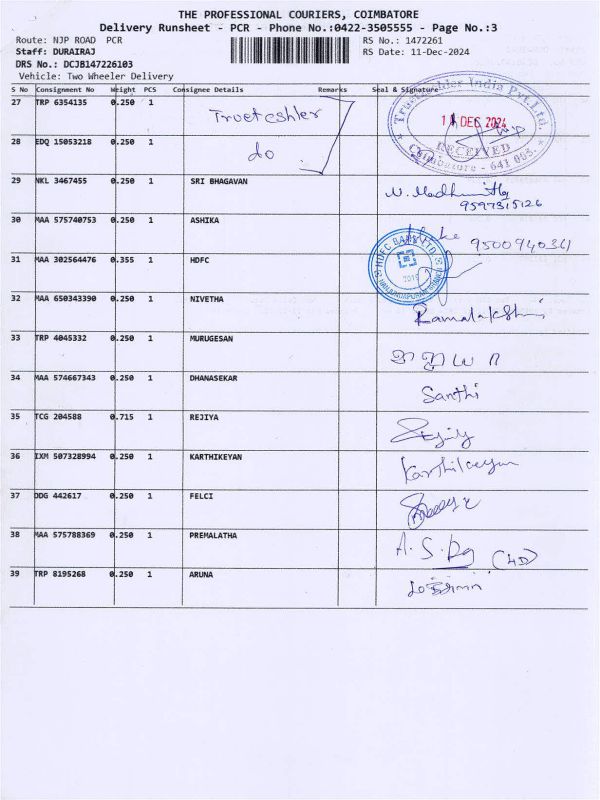 THE PROFESSIONAL COURIERS, COIMBATORE
Delivery Runsheet - PCR - Phone No.:0422-3505555 - Page No.:3
Route: NJP ROAD PCR RS No.: 1472261
Staff: DURAIRAJ RS Date: 11-Dec-2024
DRS No.: DCJB147226103
Vehicle: Two Wheeler Delivery
S No Consignment No Weight PCS Consignee Details Remarks Seal & Signature
27 TRP 6354135 0.250 1
28 EDQ 15053218 0.250 1 do
DEC 2024
RECEIVED
Coimbatore - 641
29 NKL 3467455 0.250 1 SRI BHAGAVAN
9597315126
30 MAA 575740753 0.250 1 ASHIKA 9500940361
31 MAA 302564476 0.355 1 HDFC
HDFC BANK LTD
32 MAA 650343390 0.250 1 NIVETHA Ramalakshmi
33 TRP 4045332 0.250 1 MURUGESAN
34 MAA 574667343 0.250 1 DHANASEKAR Santhi
35 TCG 204588 0.715 1 REJIYA
36 IXM 507328994 0.250 1 KARTHIKEYAN Karthikeyan
37 DDG 442617 0.250 1 FELCI
38 MAA 575788369 0.250 1 PREMALATHA
39 TRP 8195268 0.250 1 ARUNA